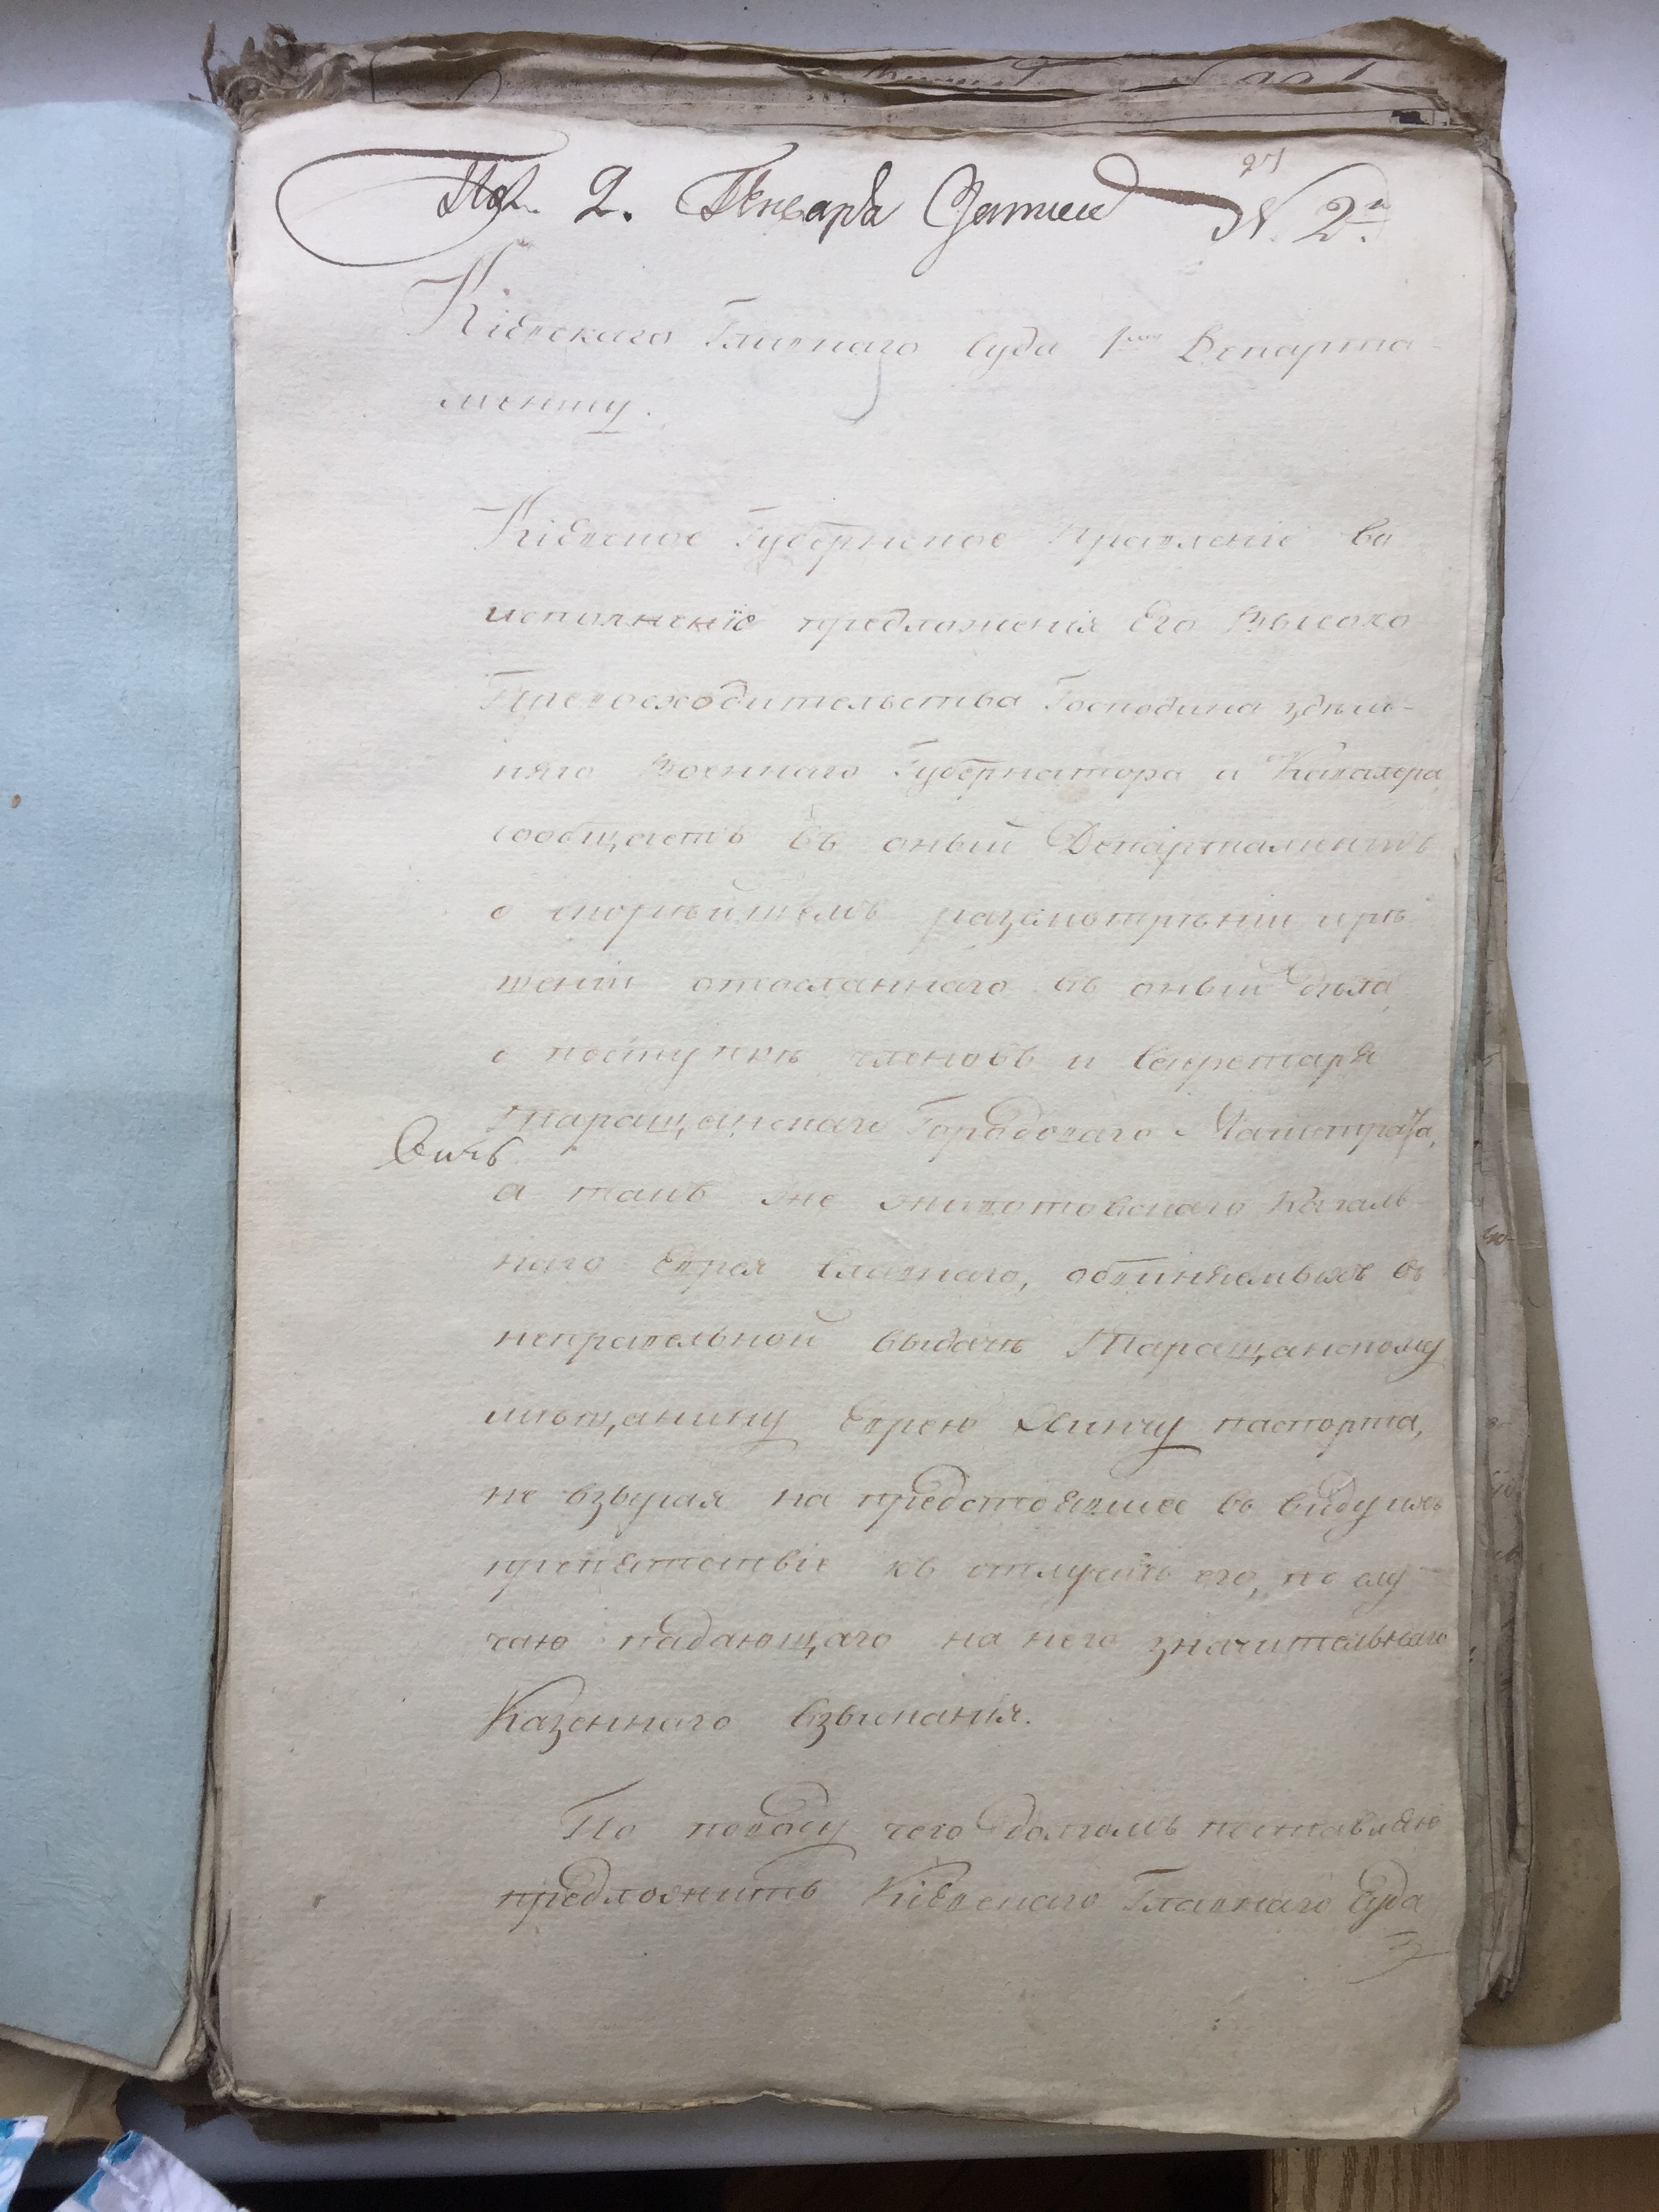 Пол. 2. Генваря N. 2й
Кіевскаго Главнаго Суда 1му Департа-
менту.
Кіевское Губернское Правленіе во
исполненіе предложенія Его Высоко
Превосходительства Господина здеш-
няго Военнаго Губернатора и Кавалера
сообщаетъ въ оный Департаментъ
о скорѣйшемъ разсмотрѣніи и рѣ-
шеніи отосланнаго въ оный дѣла
о поступкѣ членовъ и Секретаря
Таращанскаго Городоваго Магистрата,
а такъ же животовскаго Кагаль-
наго Еврея Славнаго, обвиняемыхъ въ
неправельной выдачѣ Таращанскому
мѣщанину Еврею паспорта,
не взырая на предстоявшее въ виду ихъ
препятствіе къ отлучкѣ его, по слу-
чаю падающаго на него значительнаго
Казеннаго взысканія.
По поводу чего долгомъ поставляю
предложить Кіевскаго Главнаго Суда